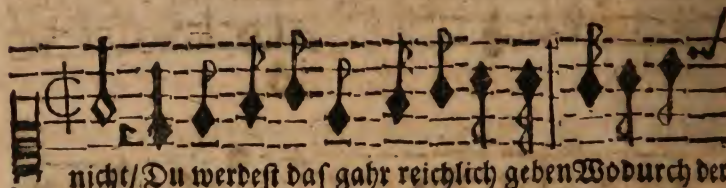 nicht/ Du werdest das gahr reichlich geben Wodurch der